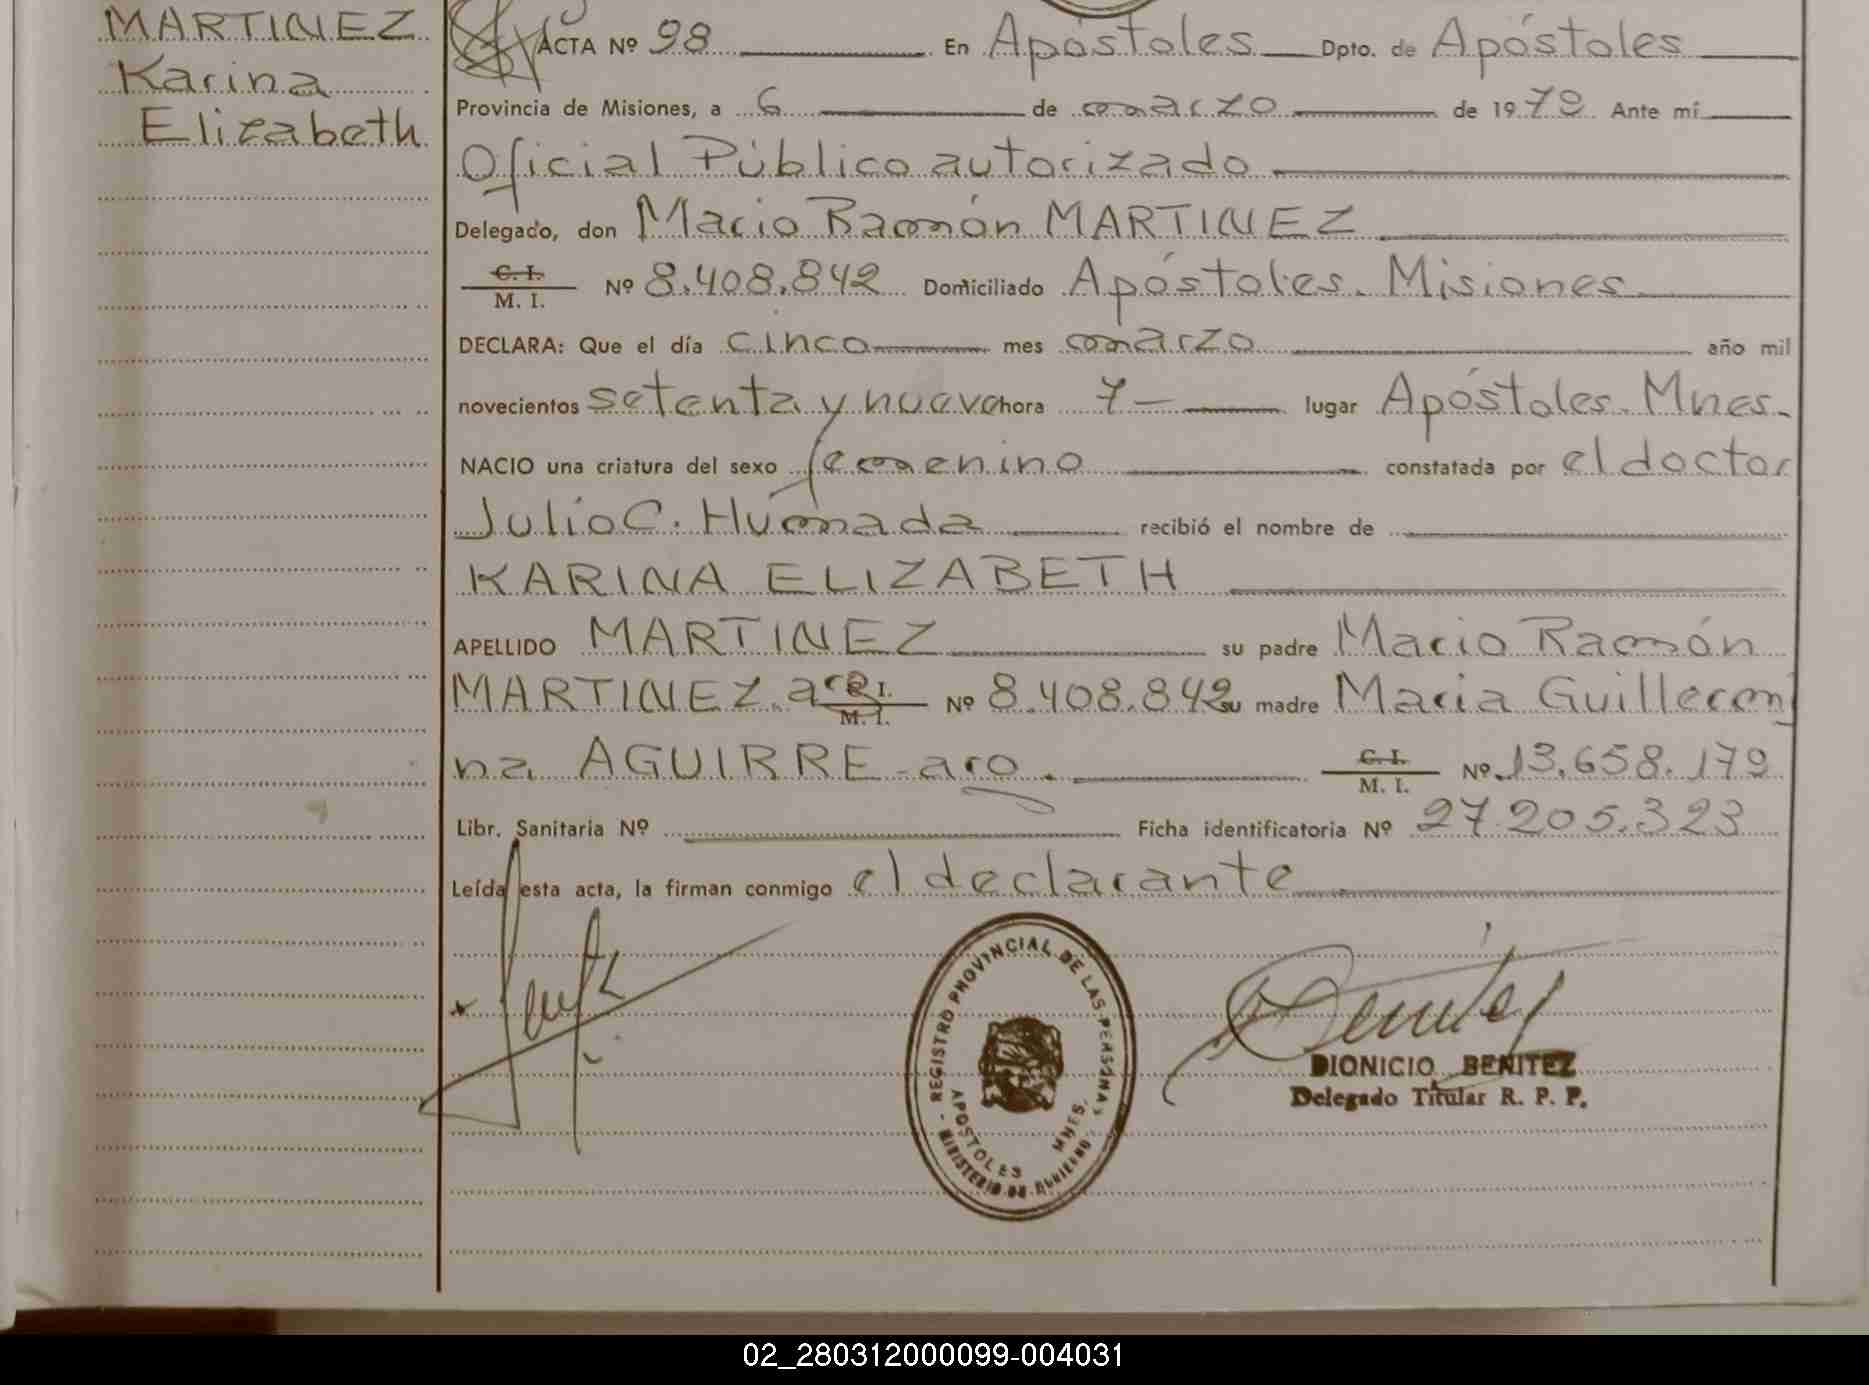 MARTINEZ
Karina
Elizabeth
ACTA Nº 98 En Apóstoles Dpto. de Apóstoles
Provincia de Misiones, a 6 de marzo de 1979 Ante mí
Oficial Público autorizado
Delegado, don Mario Ramón MARTINEZ
C. I.
M. I. Nº 8.408.842 Domiciliado Apóstoles. Misiones
DECLARA: Que el día cinco mes marzo año mil
novecientos setenta y nueve hora 7- lugar Apóstoles. Mnes.
NACIO una criatura del sexo femenino constatada por el doctor
Julio C. Húmada recibió el nombre de
KARINA ELIZABETH
APELLIDO MARTINEZ su padre Mario Ramón
MARTINEZ. arg C. I.
M. I. Nº 8.408.842 su madre Maria Guillermi
na AGUIRRE - arg. C. I.
M. I. Nº 13.658.179
Libr. Sanitaria Nº Ficha identificatoria Nº 27.205.323
Leída esta acta, la firman conmigo el declarante
REGISTRO PROVINCIAL DE LAS PERSONAS
APOSTOLES MNES.
MINISTERIO DE GOBIERNO
Benitez
DIONICIO BENITEZ
Delegado Titular R. P. P.
02_280312000099-004031